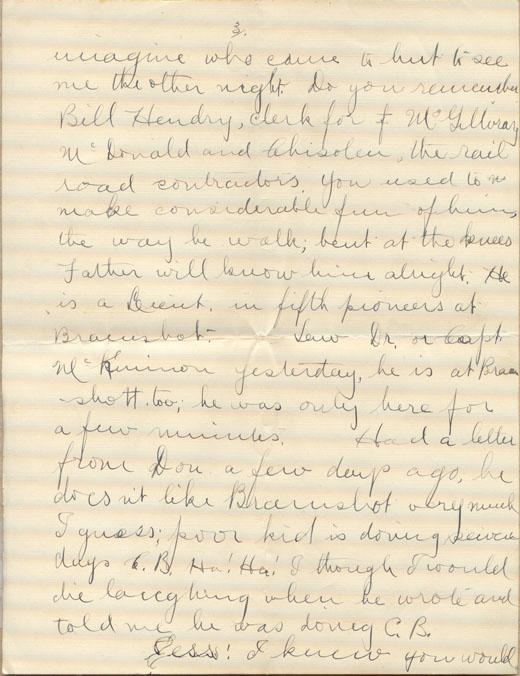 3.
imagine who came to hut to see
me the other night. Do you remember
Bill Hendry, clerk for McGillivray
McDonald and Chisolen, the rail
road contractors, you used to
make considerable fun of him,
the way he walk; bent at the knees
Father will know him alright. He
is a Lieut. in fifth pioneers at
Bramshot. Saw Dr. or Capt.
McKinnon yesterday, he is at Bram
-shott too; he was only here for
a few minutes. Had a letter
from Don a few days ago, he
doesn't like Bramshot very much
I guess; poor kid is doing
days C.B. Ha! Ha! I though I would
die laughing when he wrote and
told me he was doing C.B.
Jess! I knew you would